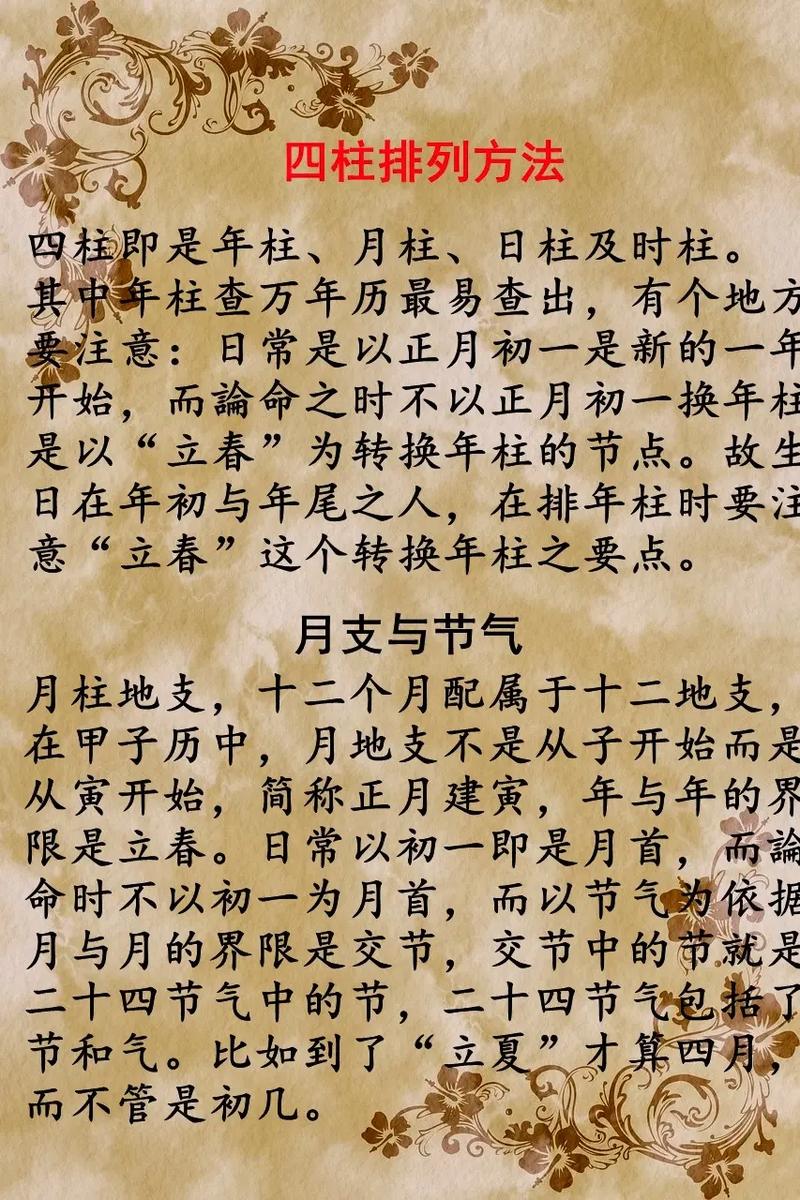 四柱排列方法
四柱即是年柱、月柱、日柱及时柱。
其中年柱查万年历最易查出，有个地方
要注意：日常是以正月初一是新的一年
开始，而論命之时不以正月初一换年柱
是以“立春”为转换年柱的节点。故生
日在年初与年尾之人，在排年柱时要注
意“立春”这个转换年柱之要点。
月支与节气
月柱地支，十二个月配属于十二地支，
在甲子历中，月地支不是从子开始而是
从寅开始，简称正月建寅，年与年的界
限是立春。日常以初一即是月首，而論
命时不以初一为月首，而以节气为依据
月与月的界限是交节，交节中的节就是
二十四节气中的节，二十四节气包括了
节和气。比如到了“立夏”才算四月，
而不管是初几。